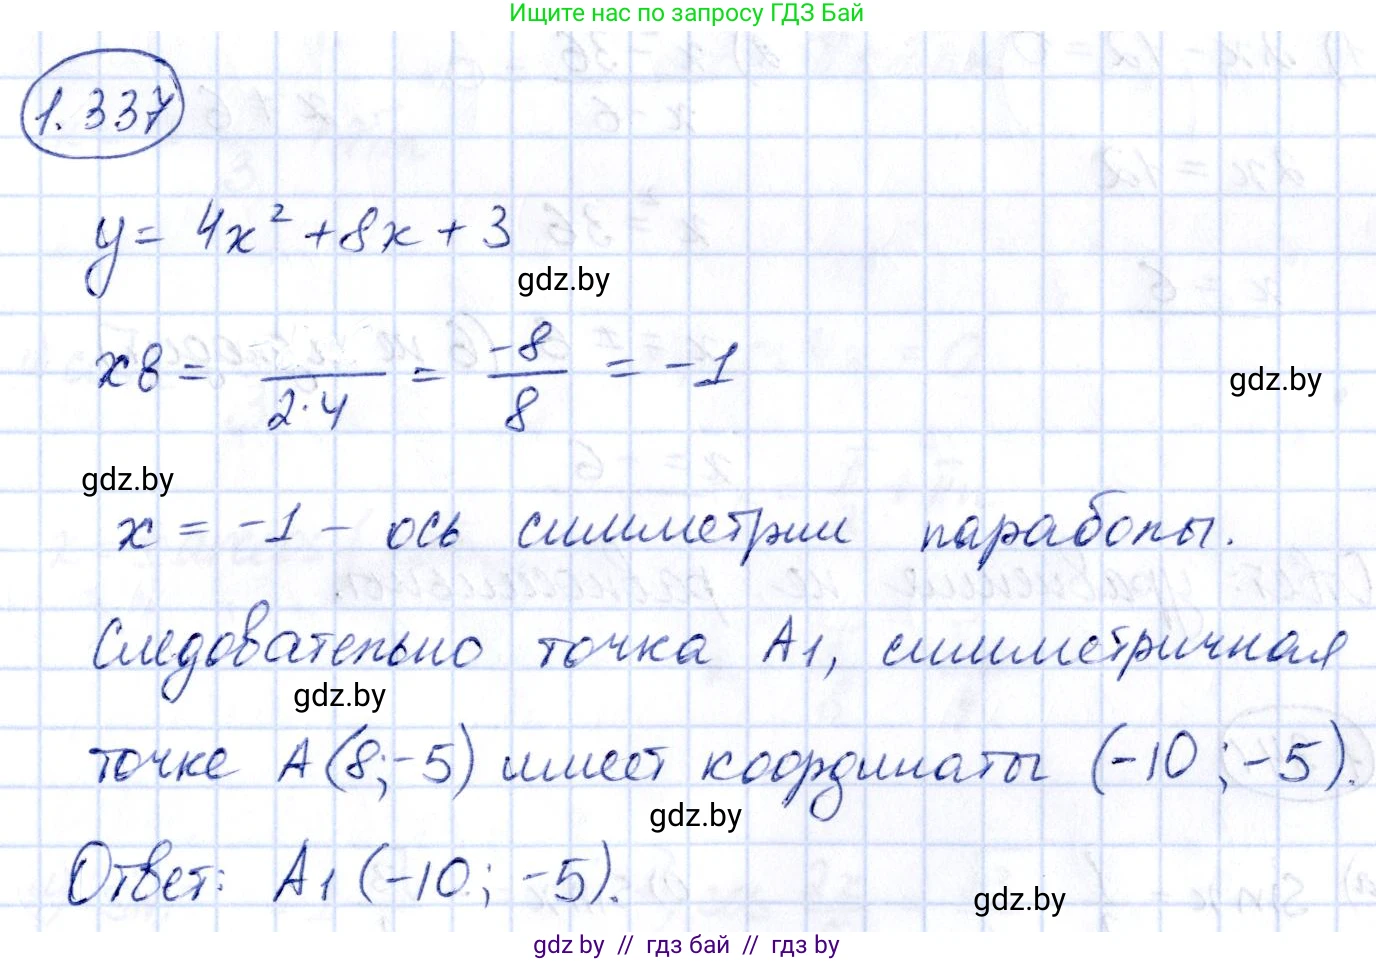 Ищите нас по запросу ГДЗ Бай
1.337
y = 4x² + 8x + 3
gdz.by
xв = /(2·4) = -8/8 = -1
gdz.by
gdz.by
x = -1 - ось симметрии параболы.
Следовательно точка A1, симметричная
gdz.by
точке A(8;-5) имеет координаты (-10;-5).
gdz.by
Ответ: A1(-10;-5).
gdz.by
gdz by // гдз бай // гдз by